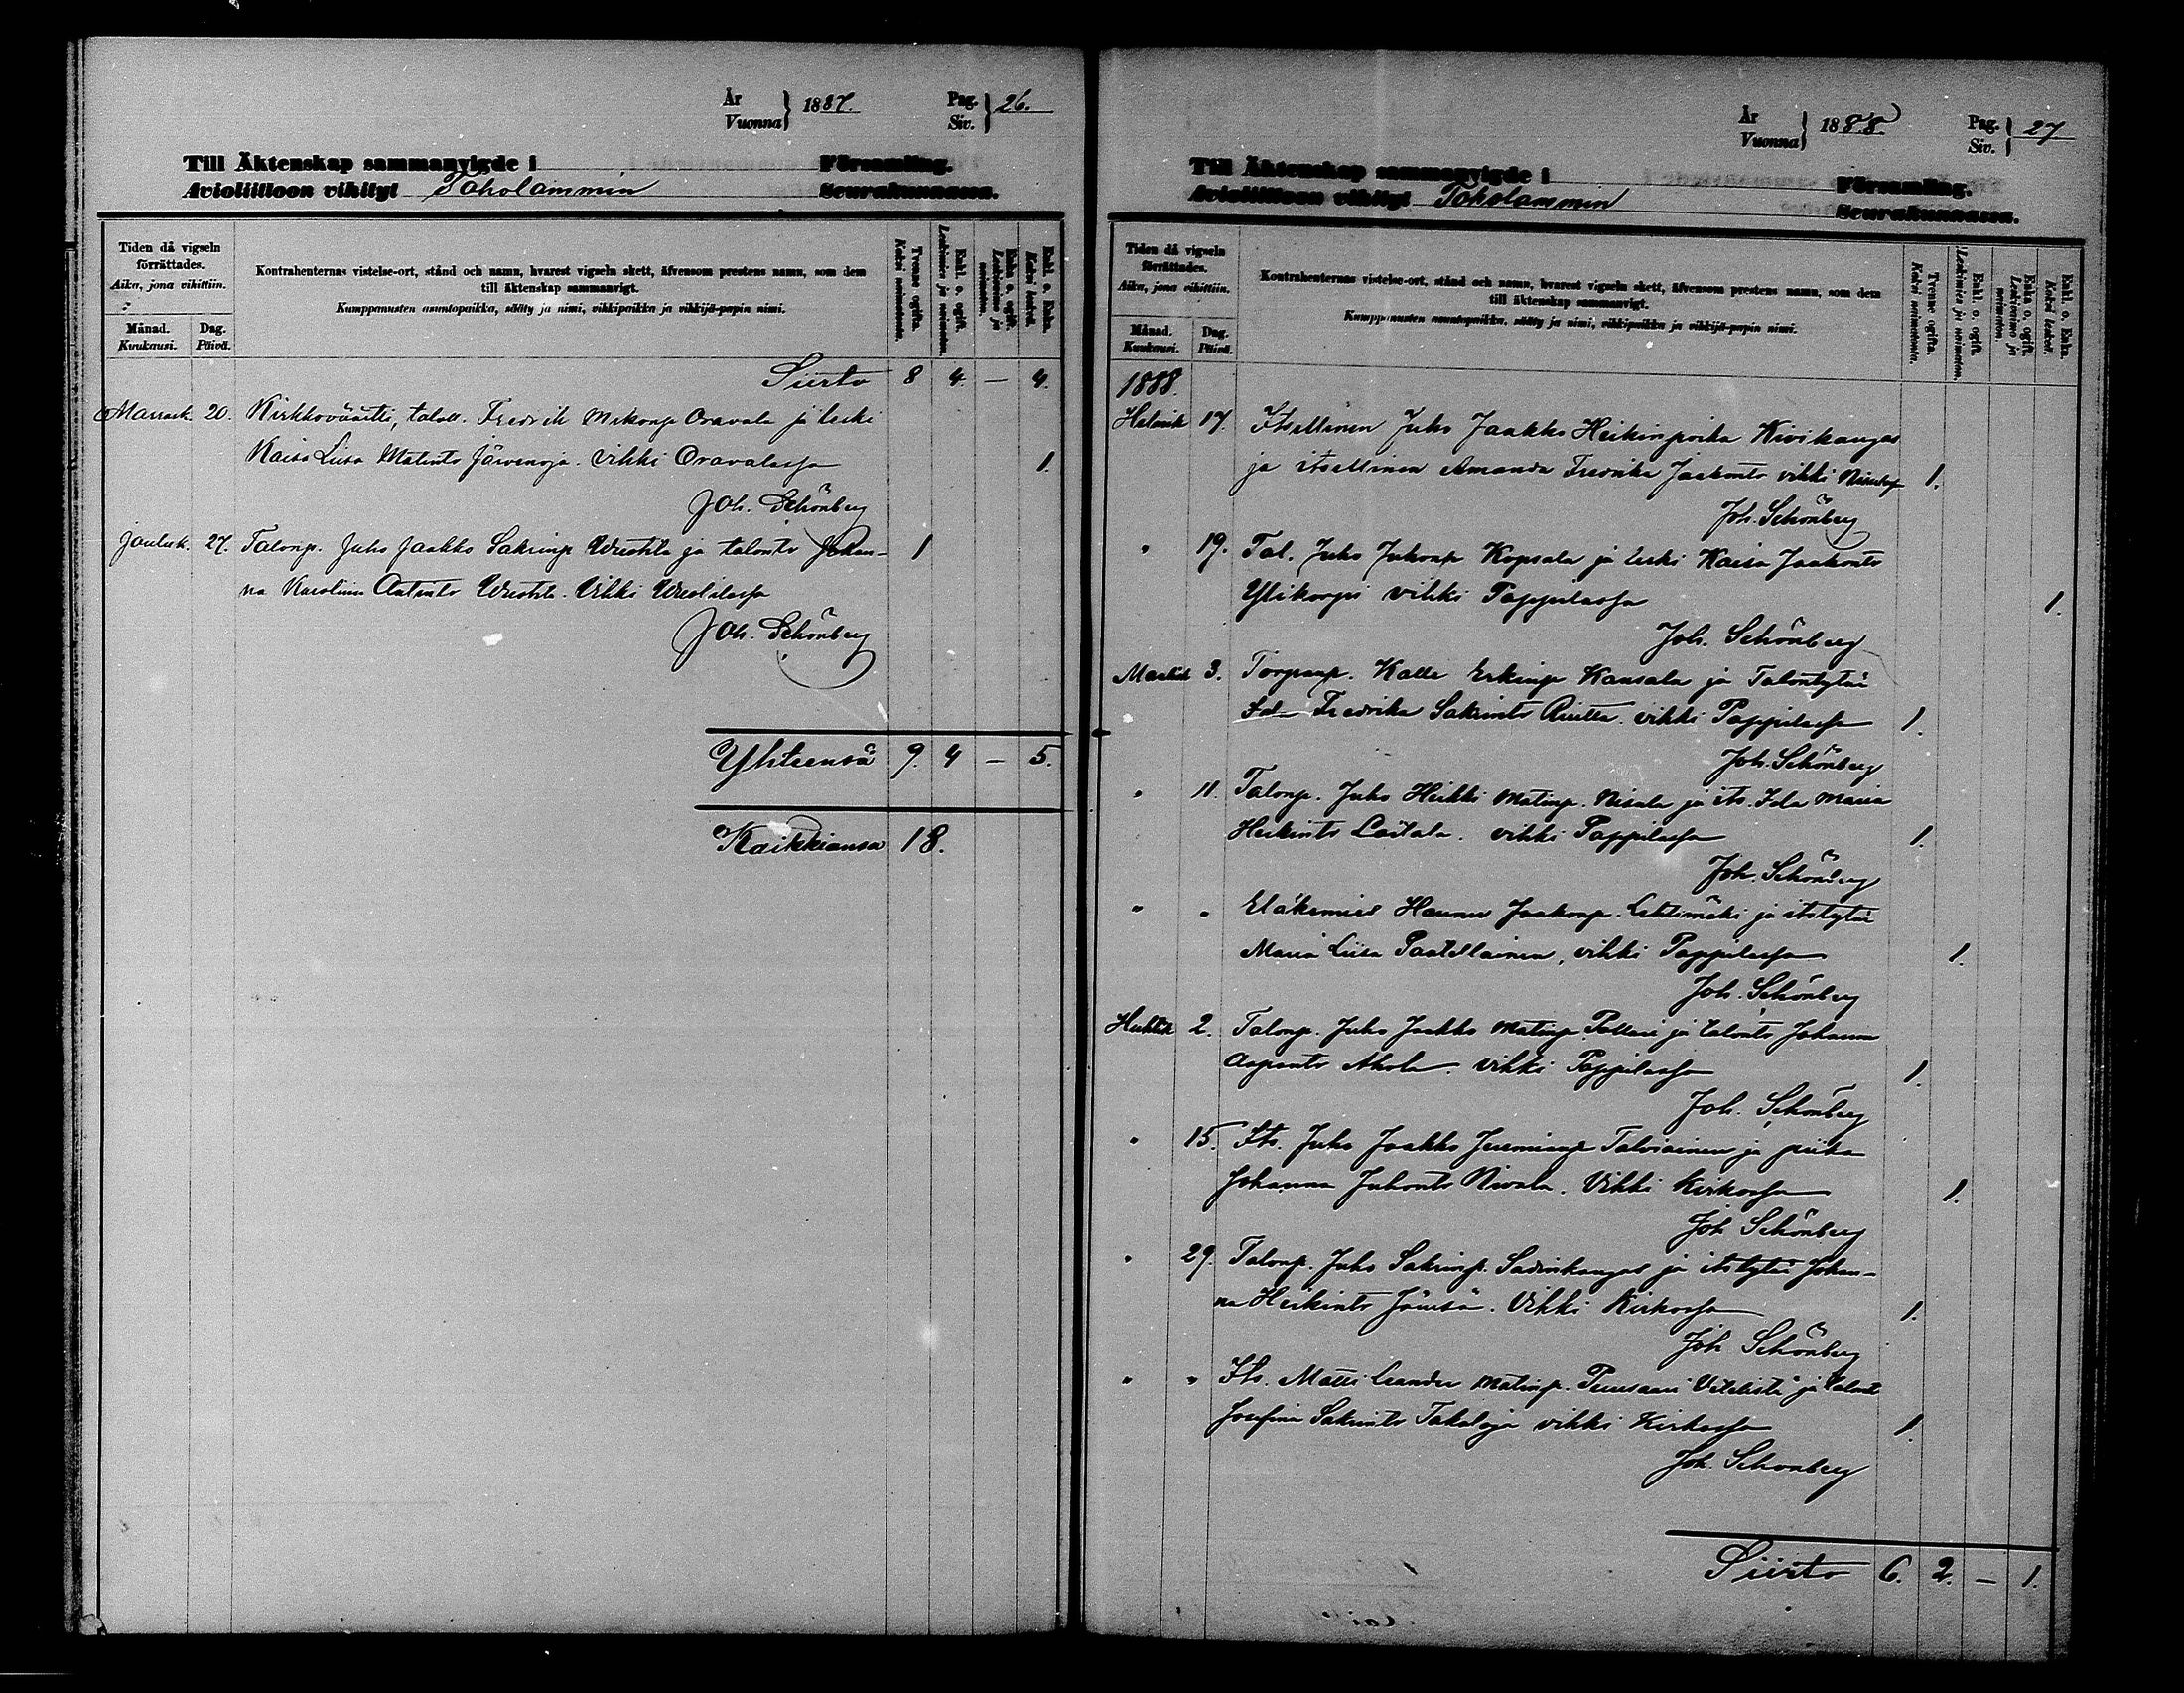 År
Vuonna } 1887.
Pag.
Siv. } 26.
Till Äktenskap sammanvigde i Församling.
Avioliittoon vihityt Toholammin Seurakunnassa.
Tiden då vigseln förrättades.
Aika, jona vihittiin.
Månad. Kuukausi.
Dag. Päivä.
Kontrahenternas vistelse-ort, stånd och namn, hvarest vigseln skett, äfvensom prestens namn, som dem
till äktenskap sammanvigt.
Kumppanusten asuntopaikka, sääty ja nimi, vihkipaikka ja vihkijä-papin nimi.
Tvenne ogifta. Kaksi naimatonta.
Enkl. o. ogift. Leskimies ja naimaton.
Enka o. ogift. Leskivaimo ja naimaton.
Enkl. o. Enka. Kaksi leskeä.
Siirto 8 4. — 4.
Marrask. 20. Kirkkoväärti, talall. Fredrik Mikonp Oravala ja leski
Kaisa Liisa Matints Järvenoja. vihki Oravalassa 1.
Joh. Schönberg
Jouluk. 27. Talonp. Juho Jaakko Sakrinp Wuotila ja talonts Johan- 1
na Karoliina Antints Wuotila. Vihki Wuotilassa
Joh. Schönberg
Yhteensä 9. 4 — 5.
Kaikkiansa 18.
År
Vuonna } 1888.
Pag.
Siv. } 27
Till Äktenskap sammanvigde i Församling.
Avioliittoon vihityt Toholammin Seurakunnassa.
Tiden då vigseln förrättades.
Aika, jona vihittiin.
Månad. Kuukausi.
Dag. Päivä.
Kontrahenternas vistelse-ort, stånd och namn, hvarest vigseln skett, äfvensom prestens namn, som dem
till äktenskap sammanvigt.
Kumppanusten asuntopaikka, sääty ja nimi, vihkipaikka ja vihkijä-papin nimi.
Tvenne ogifta. Kaksi naimatonta.
Enkl. o. ogift. Leskimies ja naimaton.
Enka o. ogift. Leskivaimo ja naimaton.
Enkl. o. Enka. Kaksi leskeä.
1888.
Helmik 17. Itsellinen Juho Jaakko Heikinpoika Kivikangas
ja itsellinen Amanda Fredrika Jaakonts vihki 1.
Joh. Schönberg
" 19. Tal. Juho Juhonp Kopsala ja leski Kaisa Jaakonts
Ylikorpi vihki Pappilassa 1.
Joh. Schönberg
Maalisk 3. Torpanp. Kalle Erkinp Kansala ja Talontytär
Ida Fredrika Sakrints Riutta. vihki Pappilassa 1.
Joh. Schönberg
" 11. Talonp. Juho Heikki Matinp. Nisula ja its. Ida Maria
Heikints Laitala. vihki Pappilassa 1.
Joh. Schönberg
" " Eläkemies Hannu Jaakonp. Lehtimäki ja itstytär
Maria Liisa Paatellainen, vihki Pappilassa 1.
Joh. Schönberg
Huhtik 2. Talonp. Juho Jaakko Matinp Pollari ja talonts Johanna
Aaponts Ahola. vihki Pappilassa 1.
Joh. Schönberg
" 15. Its. Juho Jaakko Jeremianp Talviainen ja piika
Johanna Juhonts Nivala. Vihki Kirkossa 1.
Joh Schönberg
" 29. Talonp. Juho Sakrinp. Sadinkangas ja itstytär Johan-
na Heikints Jämsä. Vihki Kirkossa 1.
Joh Schönberg
" " Its. Matti Leander Matinp. Puusaari Vetelistä ja talont
Josefina Sakrints Takaloja vihki Kirkossa 1.
Joh. Schonberg
Siirto 6. 2. — 1.